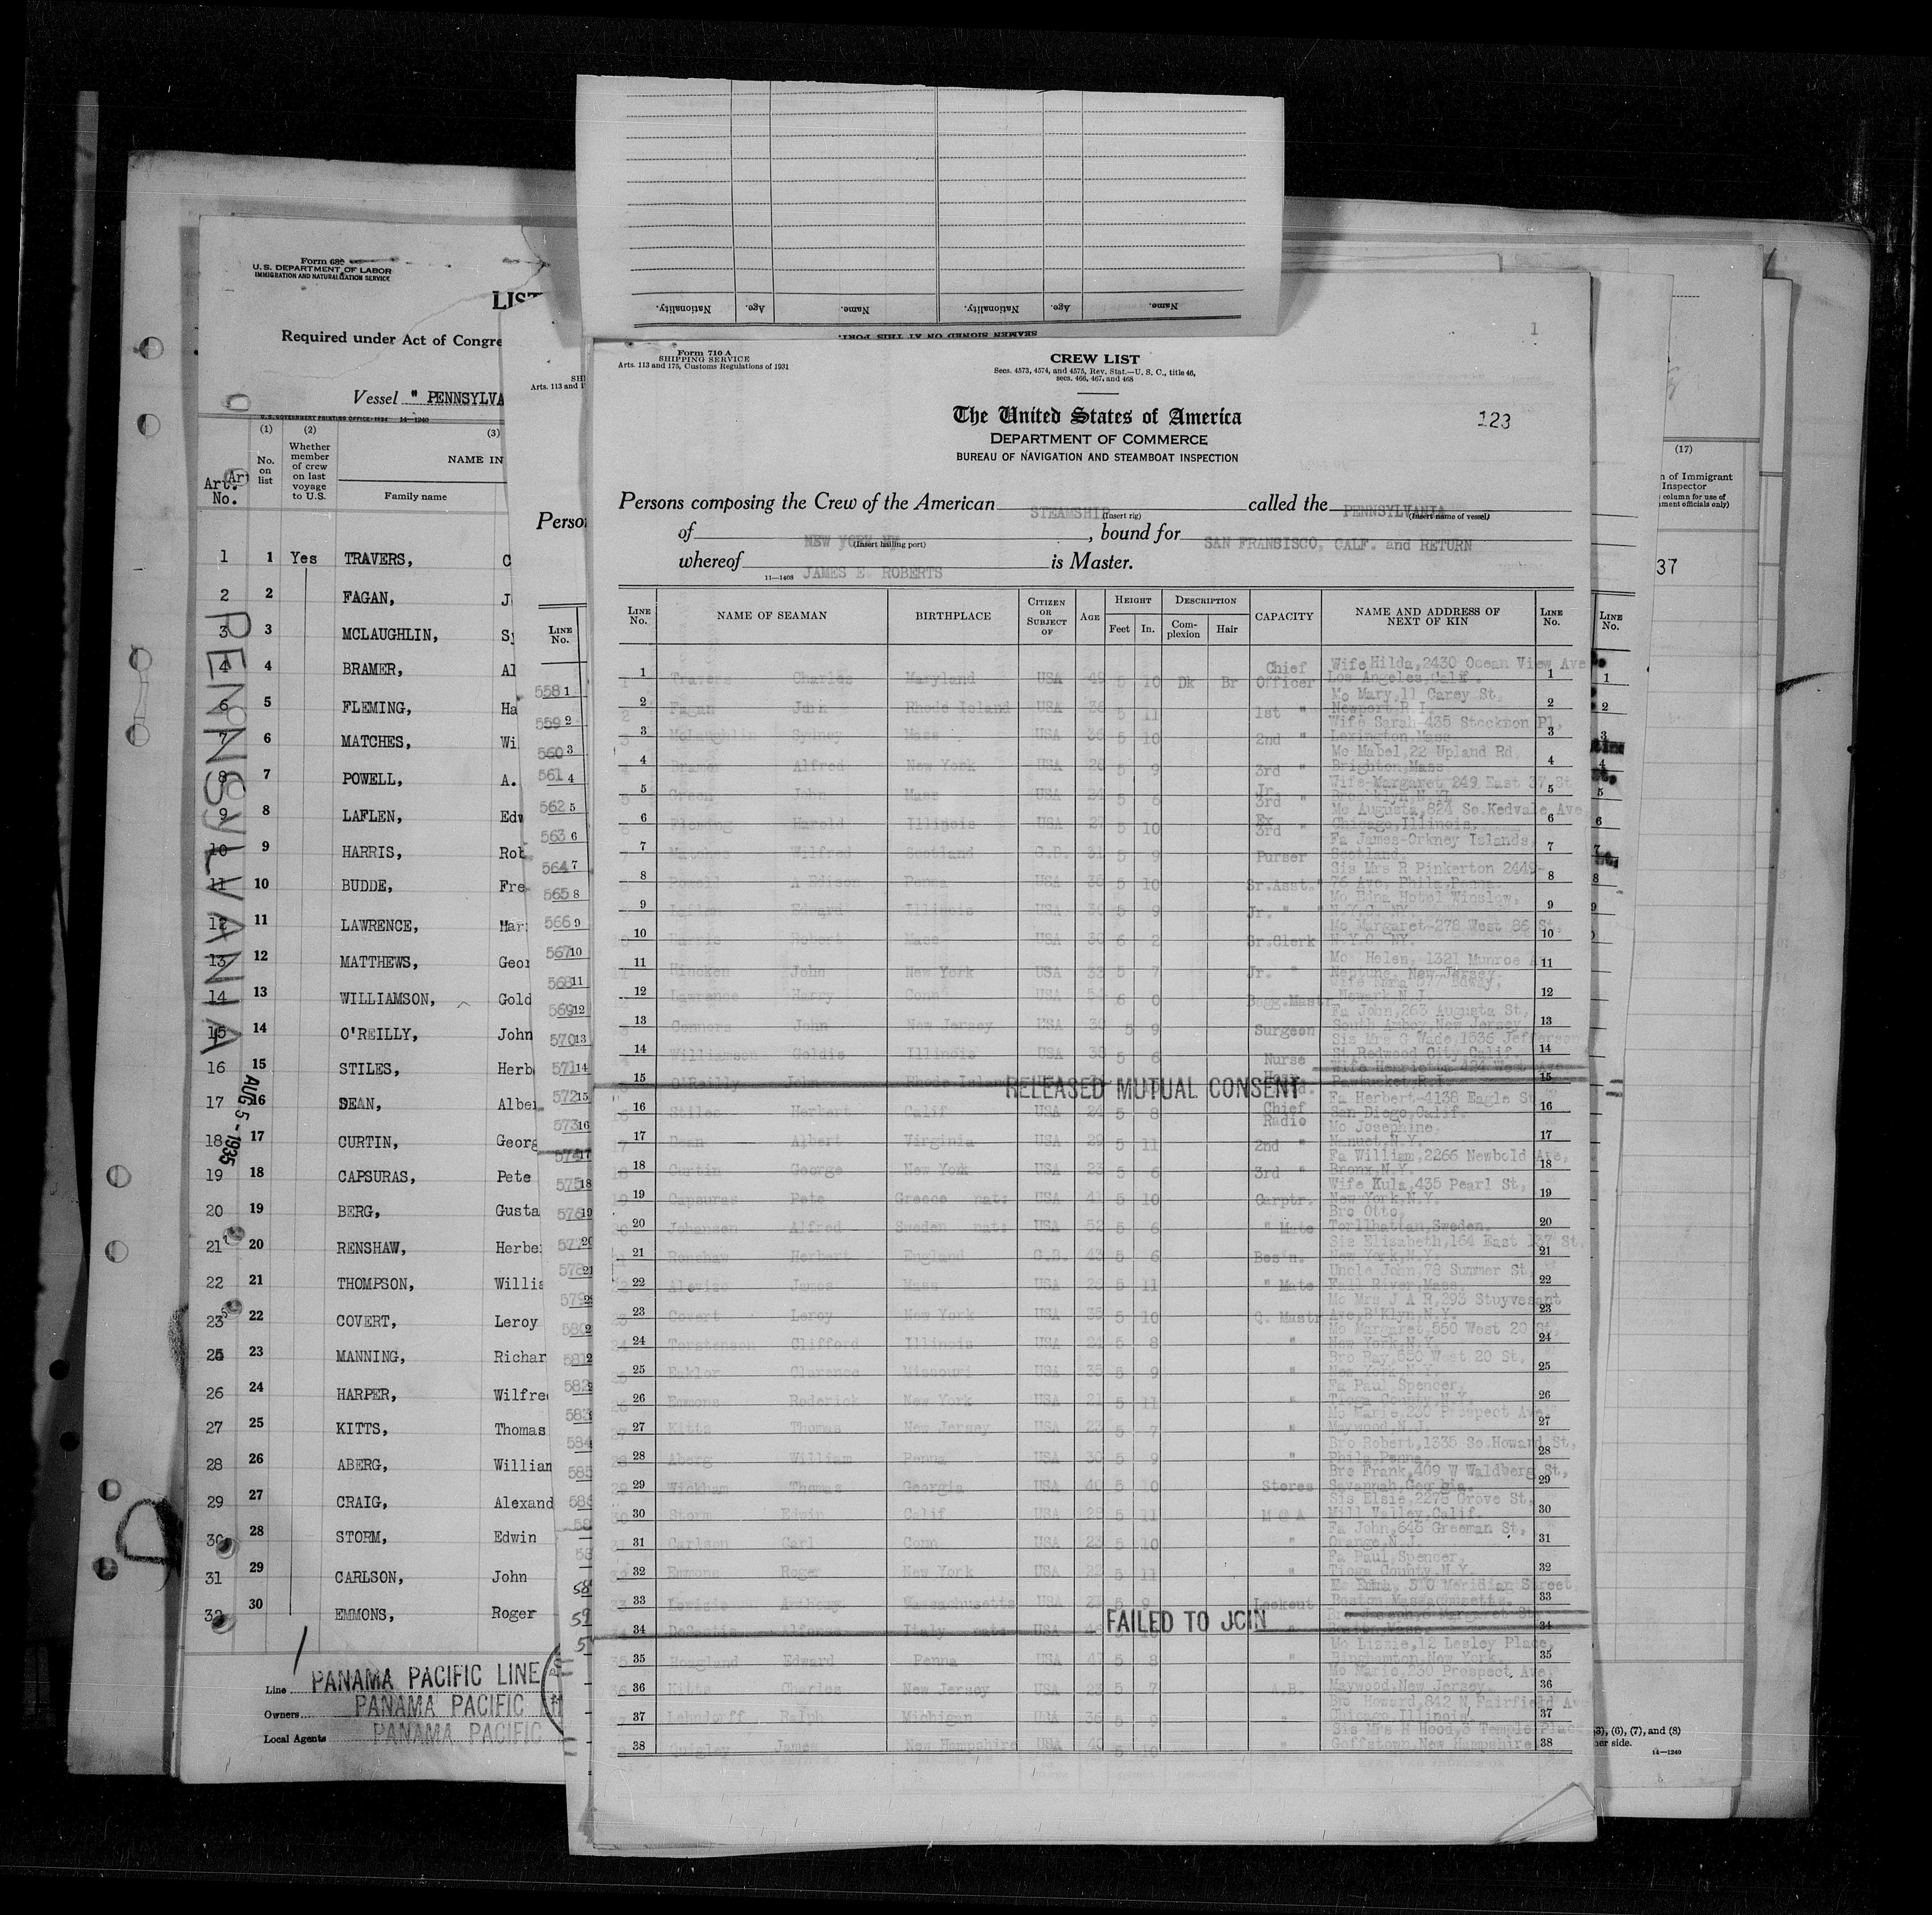 Nationality. Age. Name. Nationality. Age. Name.
SEAMEN SIGNED ON AT THIS PORT.
Form 680
U.S. DEPARTMENT OF LABOR
IMMIGRATION AND NATURALIZATION SERVICE
LIST
Required under Act of Congre
Vessel " PENNSYLVA
U.S. GOVERNMENT PRINTING OFFICE: 1934 14—1240
(1) (2) (3)
Art. No.
No. on list
Whether member of crew on last voyage to U.S.
NAME IN
Family name
1 1 Yes TRAVERS, C
2 2 FAGAN, J
3 3 MCLAUGHLIN, Sy
4 4 BRAMER, Al
6 5 FLEMING, Ha
7 6 MATCHES, Wi
8 7 POWELL, A.
9 8 LAFLEN, Edw
10 9 HARRIS, Rob
11 10 BUDDE, Fre
12 11 LAWRENCE, Har
13 12 MATTHEWS, Geor
14 13 WILLIAMSON, Gold
15 14 O'REILLY, John
16 15 STILES, Herb
17 16 DEAN, Alber
18 17 CURTIN, Georg
19 18 CAPSURAS, Pete
20 19 BERG, Gusta
21 20 RENSHAW, Herbe
22 21 THOMPSON, Willia
23 22 COVERT, Leroy
25 23 MANNING, Richar
26 24 HARPER, Wilfre
27 25 KITTS, Thomas
28 26 ABERG, William
29 27 CRAIG, Alexand
30 28 STORM, Edwin
31 29 CARLSON, John
32 30 EMMONS, Roger
PENNSYLVANIA
AUG 5 - 1935
Line PANAMA PACIFIC LINE
Owners PANAMA PACIFIC
Local Agents PANAMA PACIFIC
SHI
Arts. 113 and 1
Perso
LINE No.
558 1
559 2
560 3
561 4
562 5
563 6
564 7
565 8
566 9
567 10
568 11
569 12
570 13
571 14
572 15
573 16
574 17
575 18
576 19
577 20
578 21
Form 710 A
SHIPPING SERVICE
Arts. 113 and 175, Customs Regulations of 1931
1
CREW LIST
Secs. 4573, 4574, and 4575, Rev. Stat.—U. S. C., title 46,
secs. 466, 467, and 468
The United States of America
123
DEPARTMENT OF COMMERCE
BUREAU OF NAVIGATION AND STEAMBOAT INSPECTION
Persons composing the Crew of the American STEAMSHIP called the PENNSYLVANIA
(Insert rig) (Insert name of vessel)
of NEW YORK NY , bound for SAN FRANSISCO, CALF. and RETURN
(Insert hailing port)
whereof JAMES E. ROBERTS is Master.
11—1408
LINE No. NAME OF SEAMAN BIRTHPLACE CITIZEN OR SUBJECT OF AGE HEIGHT Feet In. DESCRIPTION Complexion Hair CAPACITY NAME AND ADDRESS OF NEXT OF KIN LINE No.
1 Travers Charles Maryland USA 49 5 10 Dk Br Chief Officer Wife Hilda, 2430 Ocean View Ave Los Angeles, Calif. 1
2 Fagan John Rhode Island USA 36 5 11 1st " Mo Mary, 11 Carey St, Newport R I. 2
3 McLaughlin Sydney Mass USA 36 5 10 2nd " Wife Sarah-435 Stockron Pl, Lexington, Mass. 3
4 Bramer Alfred New York USA 5 9 3rd " Mo Mabel, 22 Upland Rd. Brighton, Mass 4
5 Green John Mass USA 24 5 6 Jr. 3rd " Wife-Margaret 249 East 37 St 5
6 Fleming Harold Illinois USA 27 5 10 Ex. 3rd " Mo Augusta, 824 So.Kedvale Ave Chicago, Illinois. 6
7 Matches Wilfred Scotland G.B. 31 5 9 Purser Fa James-Orkney Islands, Scotland. 7
8 Powell A Edison Penna USA 35 5 10 Sr.Asst." Sis Mrs R Pinkerton 2449- 76 Ave, Phila, Penna. 8
9 Laflen Edward Illinois USA 30 5 9 Jr. " " Mo Edna Hotel Winslow, N.Y.C. NY. 9
10 Harris Robert Mass USA 30 6 2 Sr.Clerk Mo Margaret-278 West 86 St, N.Y.C. NY. 10
11 Hincken John New York USA 33 5 7 Jr. " Mo Helen, 1321 Munroe A Neptune, New Jersey. 11
12 Lawrence Harry Conn USA 54 6 0 Bagg.Mastr Wife Newark N.J. 12
13 Connors John New Jersey USA 30 5 9 Surgeon Fa John, 263 Augusta St, South Amboy, New Jersey 13
14 Williamson Goldie Illinois USA 36 5 6 Nurse Sis Mrs G Wade, 1536 Jefferson St, Redwood City, Calif. 14
15 O'Reilly John Rhode Island RELEASED MUTUAL CONSENT Wife Henrietta 424 West Ave Pawtucket, R.I. 15
16 Stiles Herbert Calif USA 24 5 8 Chief Radio Fa Herbert-4138 Eagle St San Diego, Calif. 16
17 Dean Albert Virginia USA 29 5 11 2nd " Mo Josephine, Nanuet, N.Y. 17
18 Curtin George New York USA 23 5 6 3rd " Fa William, 2266 Newbold Ave, Bronx, N.Y. 18
19 Capsuras Pete Greece nat: USA 41 5 10 Carptr. Wife Kula, 435 Pearl St, New York, N.Y. 19
20 Johansen Alfred Sweden nat: USA 52 5 6 " Mate Bro Otto, Torllhattan, Sweden. 20
21 Renshaw Herbert England G.B. 43 5 6 Bos'n. Sis Elizabeth, 164 East 137 St, New York, N.Y. 21
22 Alovize James Mass USA 26 5 11 " Mate Uncle John, 78 Summer St, Fall River, Mass. 22
23 Covert Leroy New York USA 35 5 10 Q. Mastr Mo Mrs J A R, 293 Stuyvesant Ave, B'Klyn, N.Y. 23
24 Torstenson Clifford Illinois USA 24 5 8 " Mo Margaret, 550 West 20 St, New York, N.Y. 24
25 Eaklor Clarence Missouri USA 35 5 9 " Bro Ray, 550 West 20 St, New York, N.Y. 25
26 Emmons Roderick New York USA 21 5 11 " Fa Paul Spencer, Tioga County, N.Y. 26
27 Kitts Thomas New Jersey USA 23 5 7 " Mo Marie, 230 Prospect Ave, Maywood, N.J. 27
28 Aberg William Penna USA 30 5 9 " Bro Robert, 1335 So.Howard St, Phila, Penna. 28
29 Wickham Thomas Georgia USA 40 5 10 Stores Bro Frank, 409 W Waldberg St, Savannah, Georgia. 29
30 Storm Edwin Calif USA 28 5 11 M @ A Sis Elsie, 2275 Grove St, Mill Valley, Calif. 30
31 Carlson Carl Conn USA 23 5 10 " Fa John, 645 Greeman St, Orange, N.J. 31
32 Emmons Roger New York USA 22 5 11 " Fa Paul, Spencer, Tioga County, N.Y. 32
33 Anthony Massachusetts USA 5 9 Lookout Mo Emma, 310 Meridian Street Boston, Massachusetts. 33
34 DeSantis Alfonso Italy nat: USA FAILED TO JOIN " 34
35 Hoagland Edward Penna USA 47 5 8 " Mo Lizzie, 12 Lesley Place, Binghamton, New York. 35
36 Kitts Charles New Jersey USA 5 7 A.B. Mo Marie, 230 Prospect Ave, Maywood, New Jersey. 36
37 Lehndorff Ralph Michigan USA 36 5 9 " Bro Howard, 842 N Fairfield Av Chicago, Illinois. 37
38 Quigley James New Hampshire USA 40 5 10 " Sis Mrs H Hood, 3 Temple Plac Goffstown, New Hampshire 38
(17)
n of Immigrant
Inspector
column for use of
nment officials only)
37
LINE No.
1
2
3
4
5
6
7
8
3), (6), (7), and (8)
her side.
14—1240